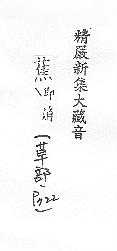 精嚴新集大藏音
蕉 即消
（草部，P.22）